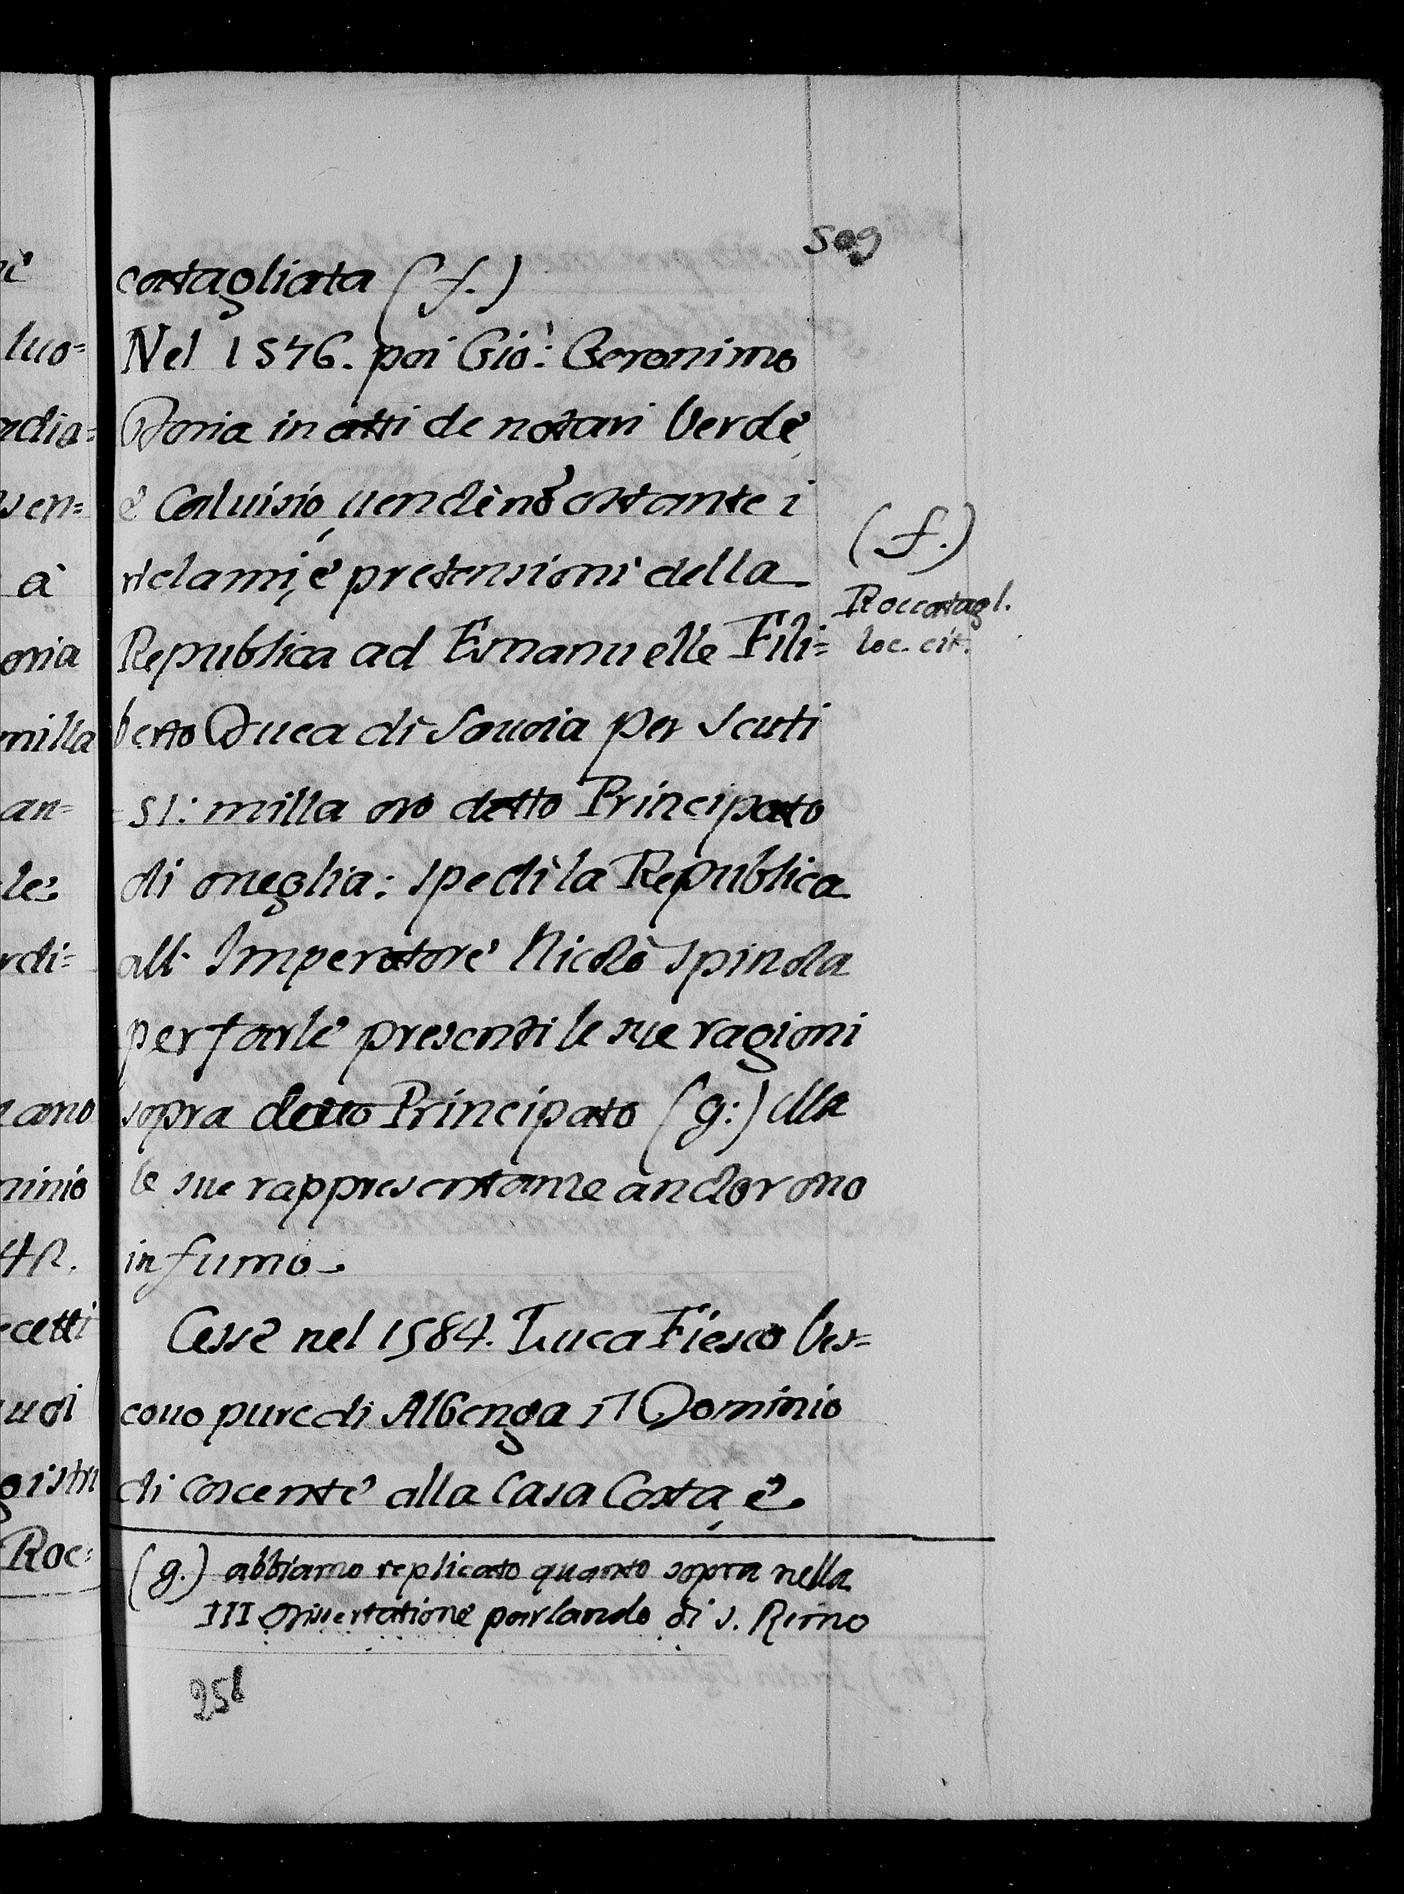 509
catagliata (f.)
Nel 1576. poi Gio: Geronimo
Doria in atti de notari Verdè
è Caluisio, uendè nō ostante i
riclami, è pretensioni della
Republica ad Emanuelle Fili=
berto Duca di Sauoia per scuti
51: milla oro detto Principato
di oneglia: spedì la Republica
all' Imperatorè Nicolò Spinola
per farlè presenti le sue ragioni
sopra detto Principato (g:) Ma
le sue rappresentanze andorono
in fumo.
Cessè nel 1584. Luca Fiesco Ves=
couo pure di Albenga il Dominio
di coscentè alla Casa Costa, è
(f.)
Roccatagl.
loc. cit.
(g.) abbiamo replicato quanto sopra nella
III Dissertationè parlando di S. Remo
256
nè
luo=
adia=
sen=
à
oria
milla
an=
le:
rdi=
ano
ninio
ecetti
uoi
gistri
Roc=